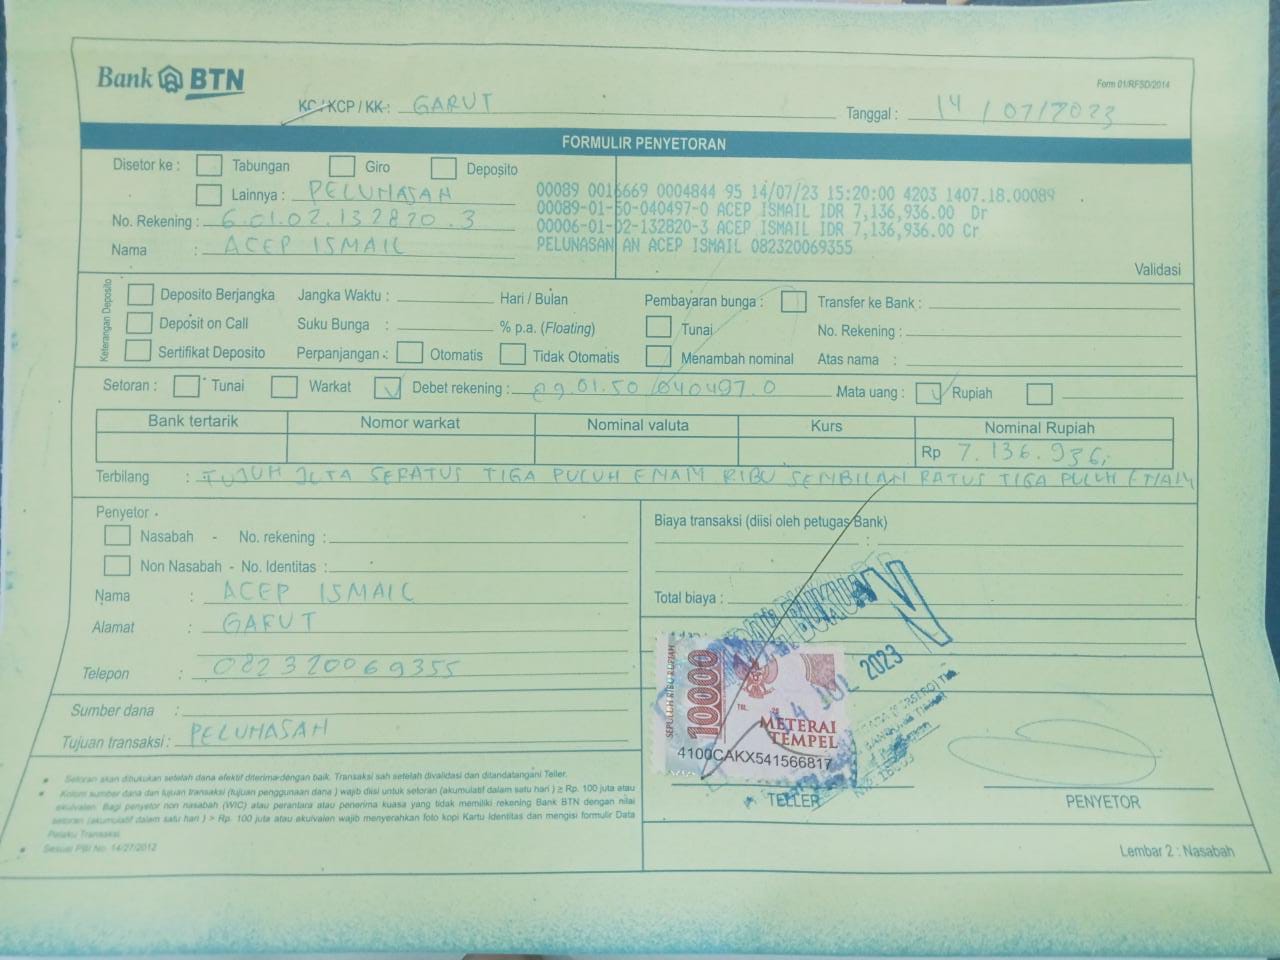 Bank BTN
Form 01/RFSD/2014
KC / KCP / KK : GARUT
Tanggal : 14 / 07 / 2023
FORMULIR PENYETORAN
Disetor ke : Tabungan Giro Deposito
Lainnya : PELUNASAN
No. Rekening : 6.01.02.132820.3
Nama : ACEP ISMAIL
00089 0016669 0004844 95 14/07/23 15:20:00 4203 1407.18.00089
00089-01-50-040497-0 ACEP ISMAIL IDR 7,136,936.00 Dr
00006-01-02-132820-3 ACEP ISMAIL IDR 7,136,936.00 Cr
PELUNASAN AN ACEP ISMAIL 082320069355
Validasi
Keterangan Deposito
Deposito Berjangka Jangka Waktu : Hari / Bulan
Deposit on Call Suku Bunga : % p.a. (Floating)
Sertifikat Deposito Perpanjangan : Otomatis Tidak Otomatis
Pembayaran bunga : Transfer ke Bank :
Tunai No. Rekening :
Menambah nominal Atas nama :
Setoran : Tunai Warkat Debet rekening : 89.01.50 040497.0 Mata uang : Rupiah
Bank tertarik Nomor warkat Nominal valuta Kurs Nominal Rupiah
Rp 7.136.936,-
Terbilang : TUJUH JUTA SERATUS TIGA PULUH ENAM RIBU SEMBILAN RATUS TIGA PULUH ENAM
Penyetor
Nasabah - No. rekening :
Non Nasabah - No. Identitas :
Nama : ACEP ISMAIL
Alamat : GARUT
Telepon : 082320069355
Sumber dana :
Tujuan transaksi : PELUNASAN
Biaya transaksi (diisi oleh petugas Bank)
:
Total biaya :
SEPULUH RIBU RUPIAH
10000
METERAI
TEMPEL
4100CAKX541566817
14 JUL 2023
TELLER
PENYETOR
Setoran akan dibukukan setelah dana efektif diterima dengan baik. Transaksi sah setelah divalidasi dan ditandatangani Teller.
Kolom sumber dana dan tujuan transaksi (tujuan penggunaan dana) wajib diisi untuk setoran (akumulatif dalam satu hari) ≥ Rp. 100 juta atau
ekuivalen. Bagi penyetor non nasabah (WIC) atau perantara atau penerima kuasa yang tidak memiliki rekening Bank BTN dengan nilai
setoran (akumulatif dalam satu hari) > Rp. 100 juta atau ekuivalen wajib menyerahkan foto kopi Kartu Identitas dan mengisi formulir Data
Pelaku Transaksi.
Sesuai PBI No. 14/27/2012
Lembar 2 : Nasabah